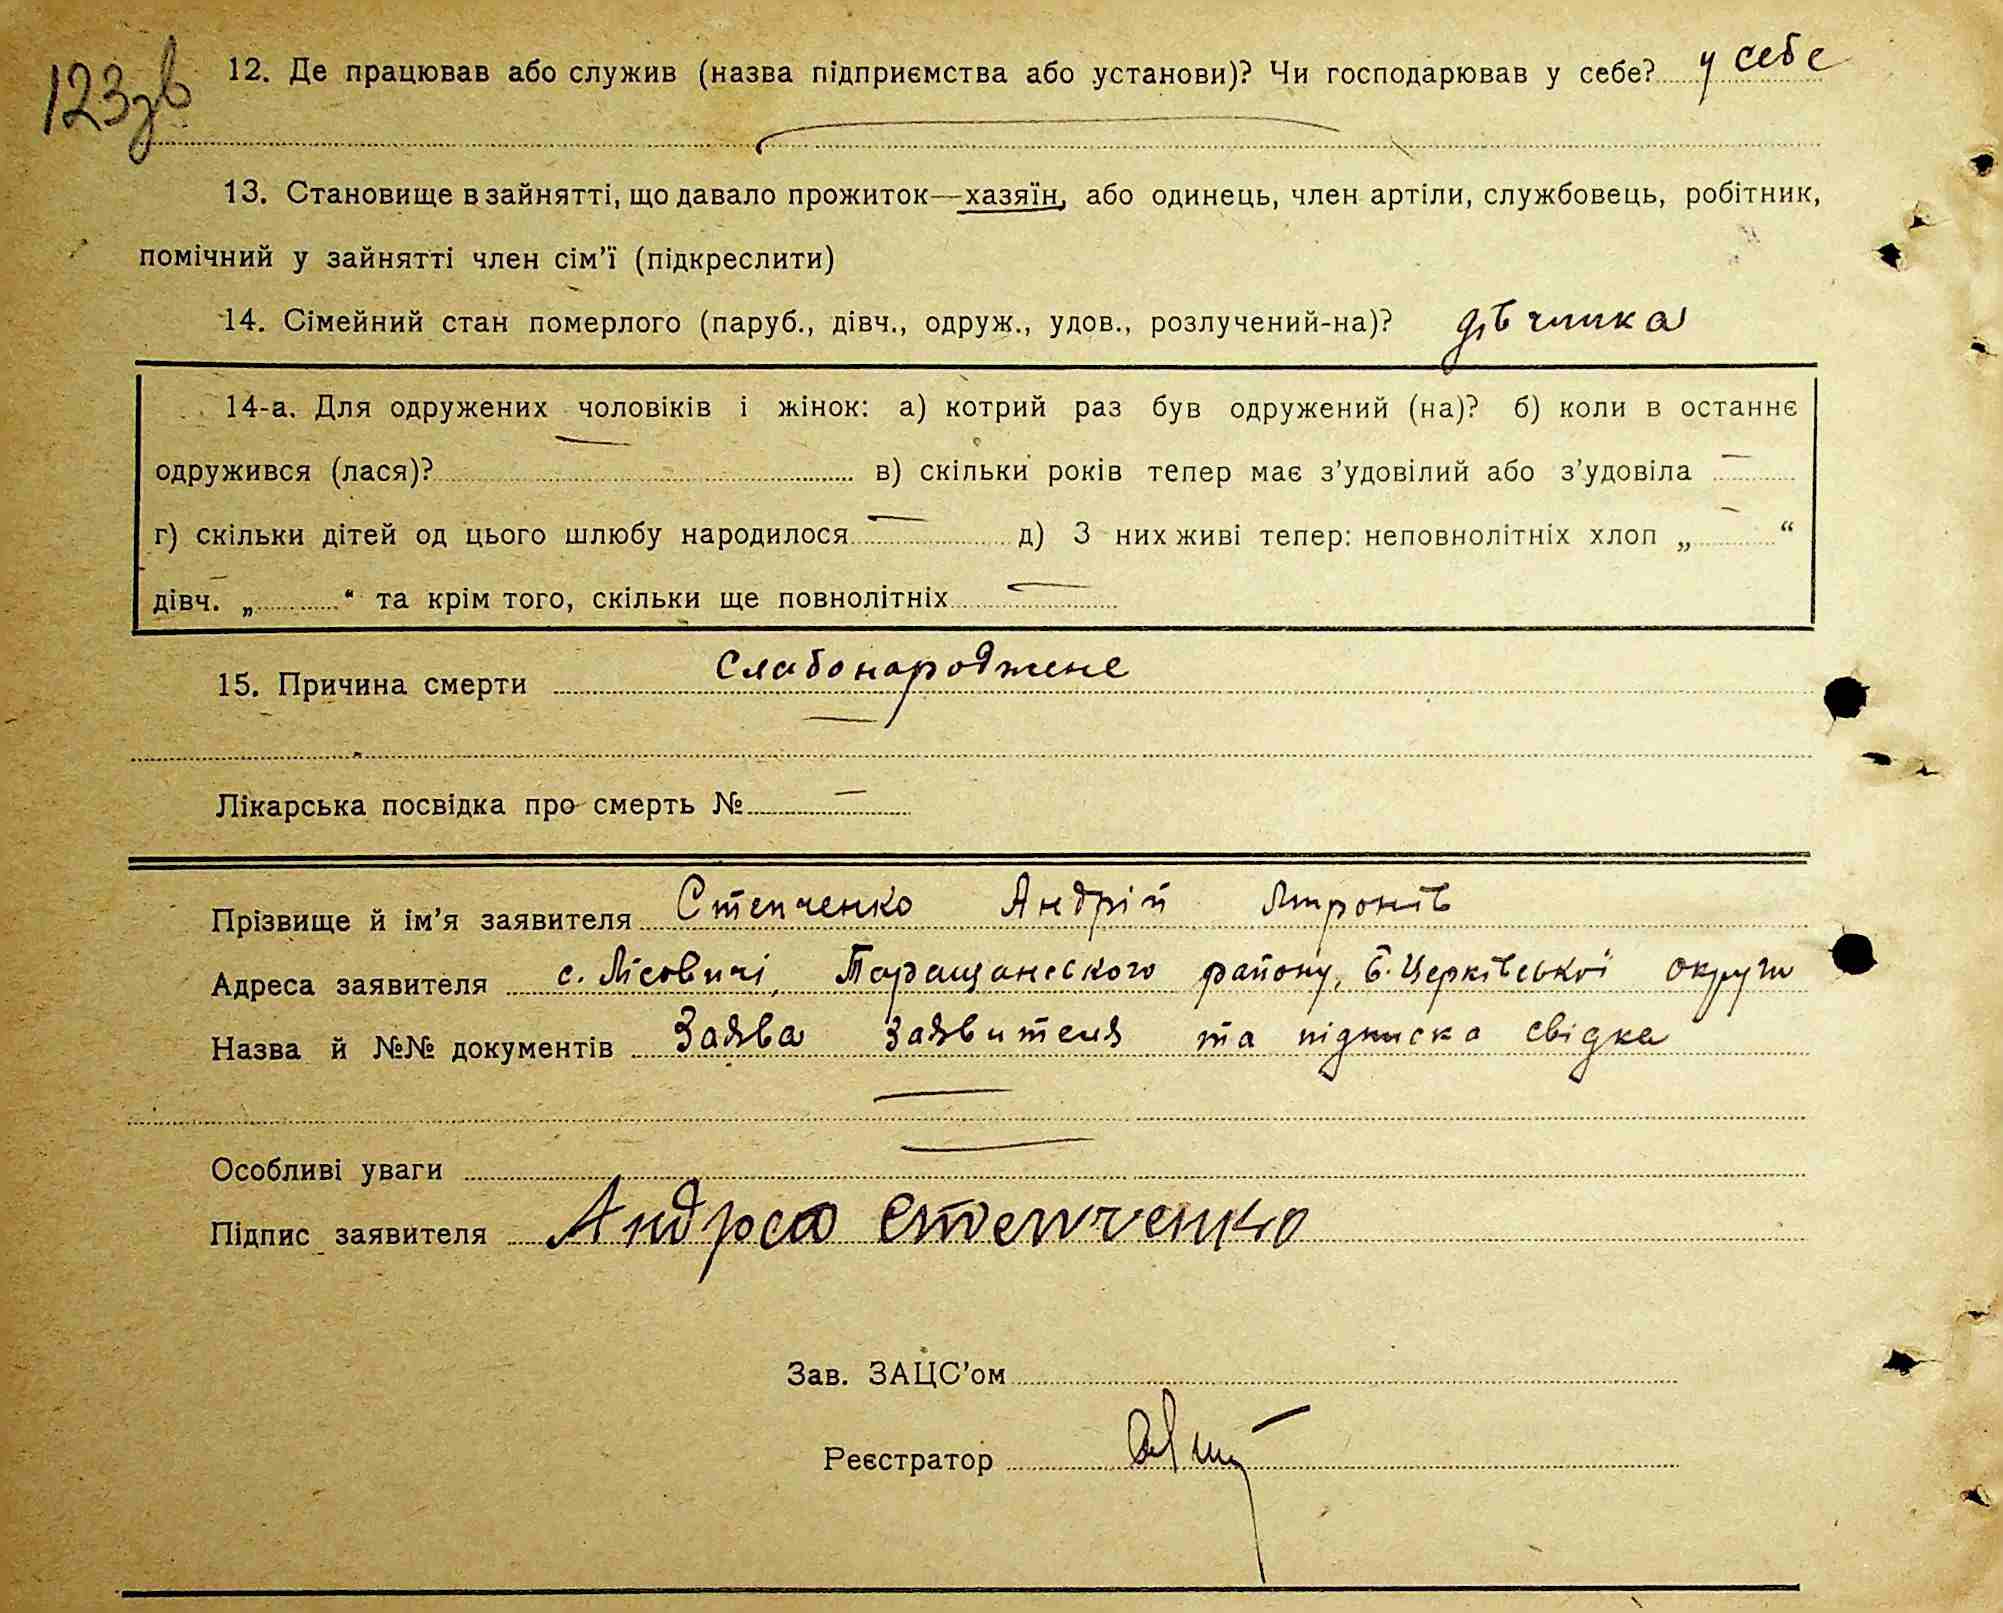 123зв
12. Де працював або служив (назва підприємства або установи)? Чи господарював у себе? у себе
13. Становище в зайнятті, що давало прожиток—хазяїн, або одинець, член артіли, службовець, робітник,
помічний у зайнятті член сім’ї (підкреслити)
14. Сімейний стан померлого (паруб., дівч., одруж., удов., розлучений-на)? дівчинка
14-а. Для одружених чоловіків і жінок: а) котрий раз був одружений (на)? б) коли в останнє
одружився (лася)? — в) скільки років тепер має з’удовілий або з’удовіла —
г) скільки дітей од цього шлюбу народилося — д) З них живі тепер: неповнолітніх хлоп „ — “
дівч. „ — “ та крім того, скільки ще повнолітніх —
15. Причина смерти Слабонароджене
Лікарська посвідка про смерть № —
Прізвище й ім’я заявителя Степченко Андрій Миронів
Адреса заявителя с. Лісовичі, Таращанського району, Б. Церківської округи
Назва й №№ документів Заява заявителя та підписка свідка
Особливі уваги —
Підпис заявителя Андрей Степченко
Зав. ЗАЦС’ом
Реєстратор